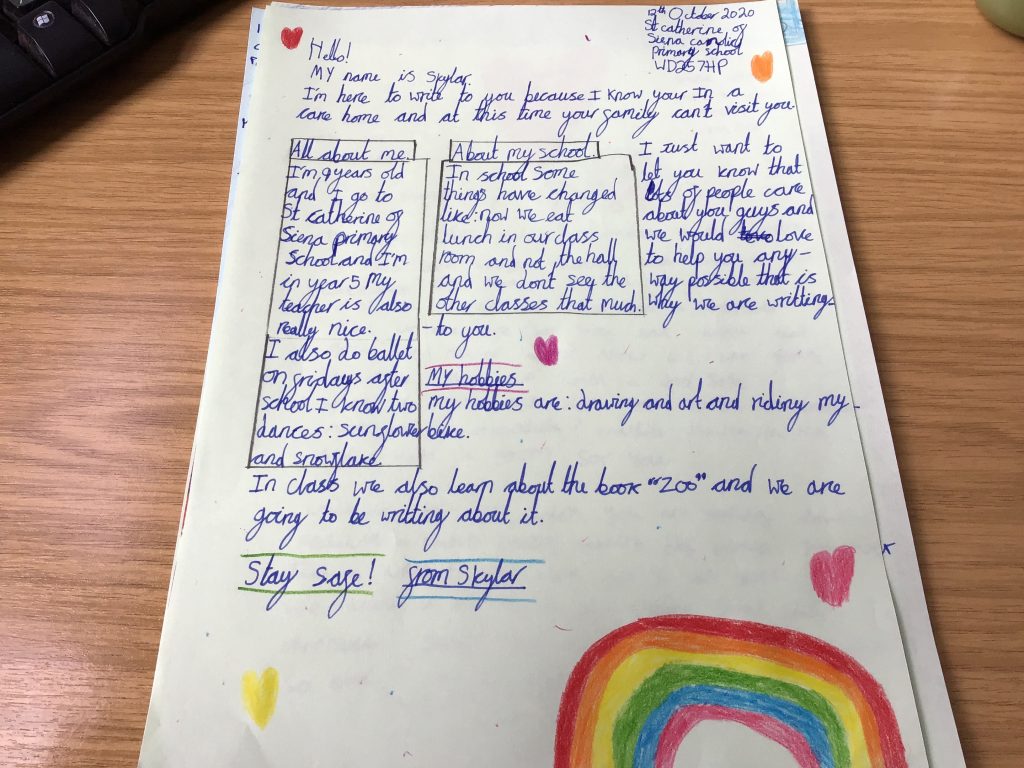 13th October 2020
St catherine, of
Siena catholic
primary school
WD257HP
Hello!
MY name is Skylar.
I'm here to write to you because I know your In a
care home and at this time your family can't visit you.
All about me.
I'm 9 years old
and I go to
St catherine of
Siena primary
School and I'm
in year 5 My
teacher is also
really nice.
I also do ballet
on fridays after
school I know two
dances: sunflower
and snowflake.
About my school.
In school some
things have changed
like: now we eat
lunch in our class
room and not the hall
and we dont see the
other classes that much.
I Just want to
let you know that
lots of people care
about you guys and
we would love
to help you any-
way possible that is
why we are writting
-to you.
MY hobbies
my hobbies are: drawing and art and riding my-
bike.
In class we also learn about the book "Zoo" and we are
going to be writting about it.
Stay safe! from Skylar